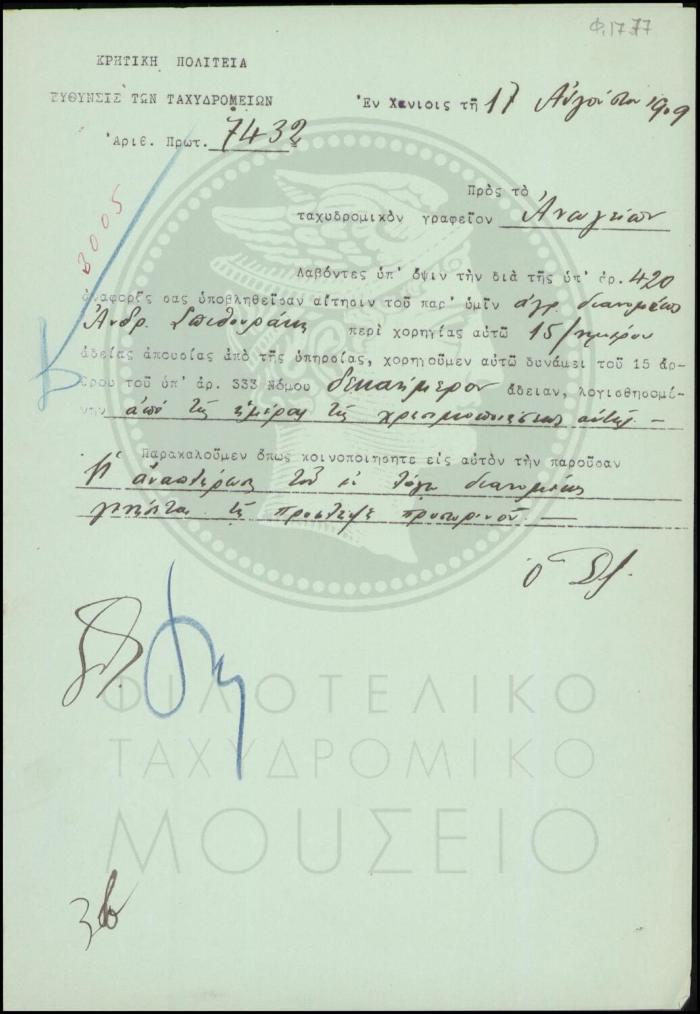 Φ.17.77
ΚΡΗΤΙΚΗ ΠΟΛΙΤΕΙΑ
ΕΥΘΥΝΣΙΣ ΤΩΝ ΤΑΧΥΔΡΟΜΕΙΩΝ
Ἐν Χανίοις τῇ 17 Αὐγούστου 1909
Ἀριθ. Πρωτ. 7432
3005
Πρὸς τὸ
ταχυδρομικὸν γραφεῖον Ἀνωγείων
Λαβόντες ὑπ' ὄψιν τὴν διὰ τῆς ὑπ' ἀρ. 420
ἀναφορᾶς σας ὑποβληθεῖσαν αἴτησιν τοῦ παρ' ὑμῖν ἀγρ. διανομέως
Ἀνδρ. Σπιθουράκη περὶ χορηγίας αὐτῷ 15/ημέρου
ἀδείας ἀπουσίας ἀπὸ τῆς ὑπηρεσίας, χορηγοῦμεν αὐτῷ δυνάμει τοῦ 15 ἄρ-
θρου τοῦ ὑπ' ἀρ. 333 Νόμου δεκαήμερον ἄδειαν, λογισθησομέ-
νην ἀπὸ τῆς ἡμέρας τῆς χρησιμοποιήσεως αὐτῆς. —
Παρακαλοῦμεν ὅπως κοινοποιήσητε εἰς αὐτὸν τὴν παροῦσαν
Ἡ ἀναπλήρωσις τοῦ ἐν λόγῳ διανομέως
γενήσεται τῇ προσλήψει προσωρινοῦ. —
ὁ
ΦΙΛΟΤΕΛΙΚΟ
ΤΑΧΥΔΡΟΜΙΚΟ
ΜΟΥΣΕΙΟ